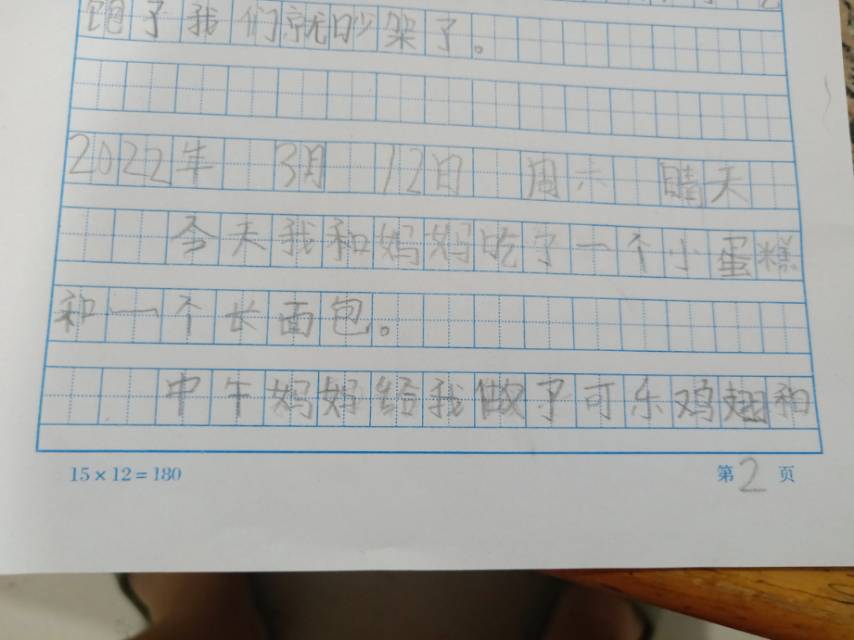 饱了我们就吵架了。
2022年 3月 12日 周末 晴天
今天我和妈妈吃了一个小蛋糕
和一个长面包。
中午妈妈给我做了可乐鸡翅和
15×12=180 第2页